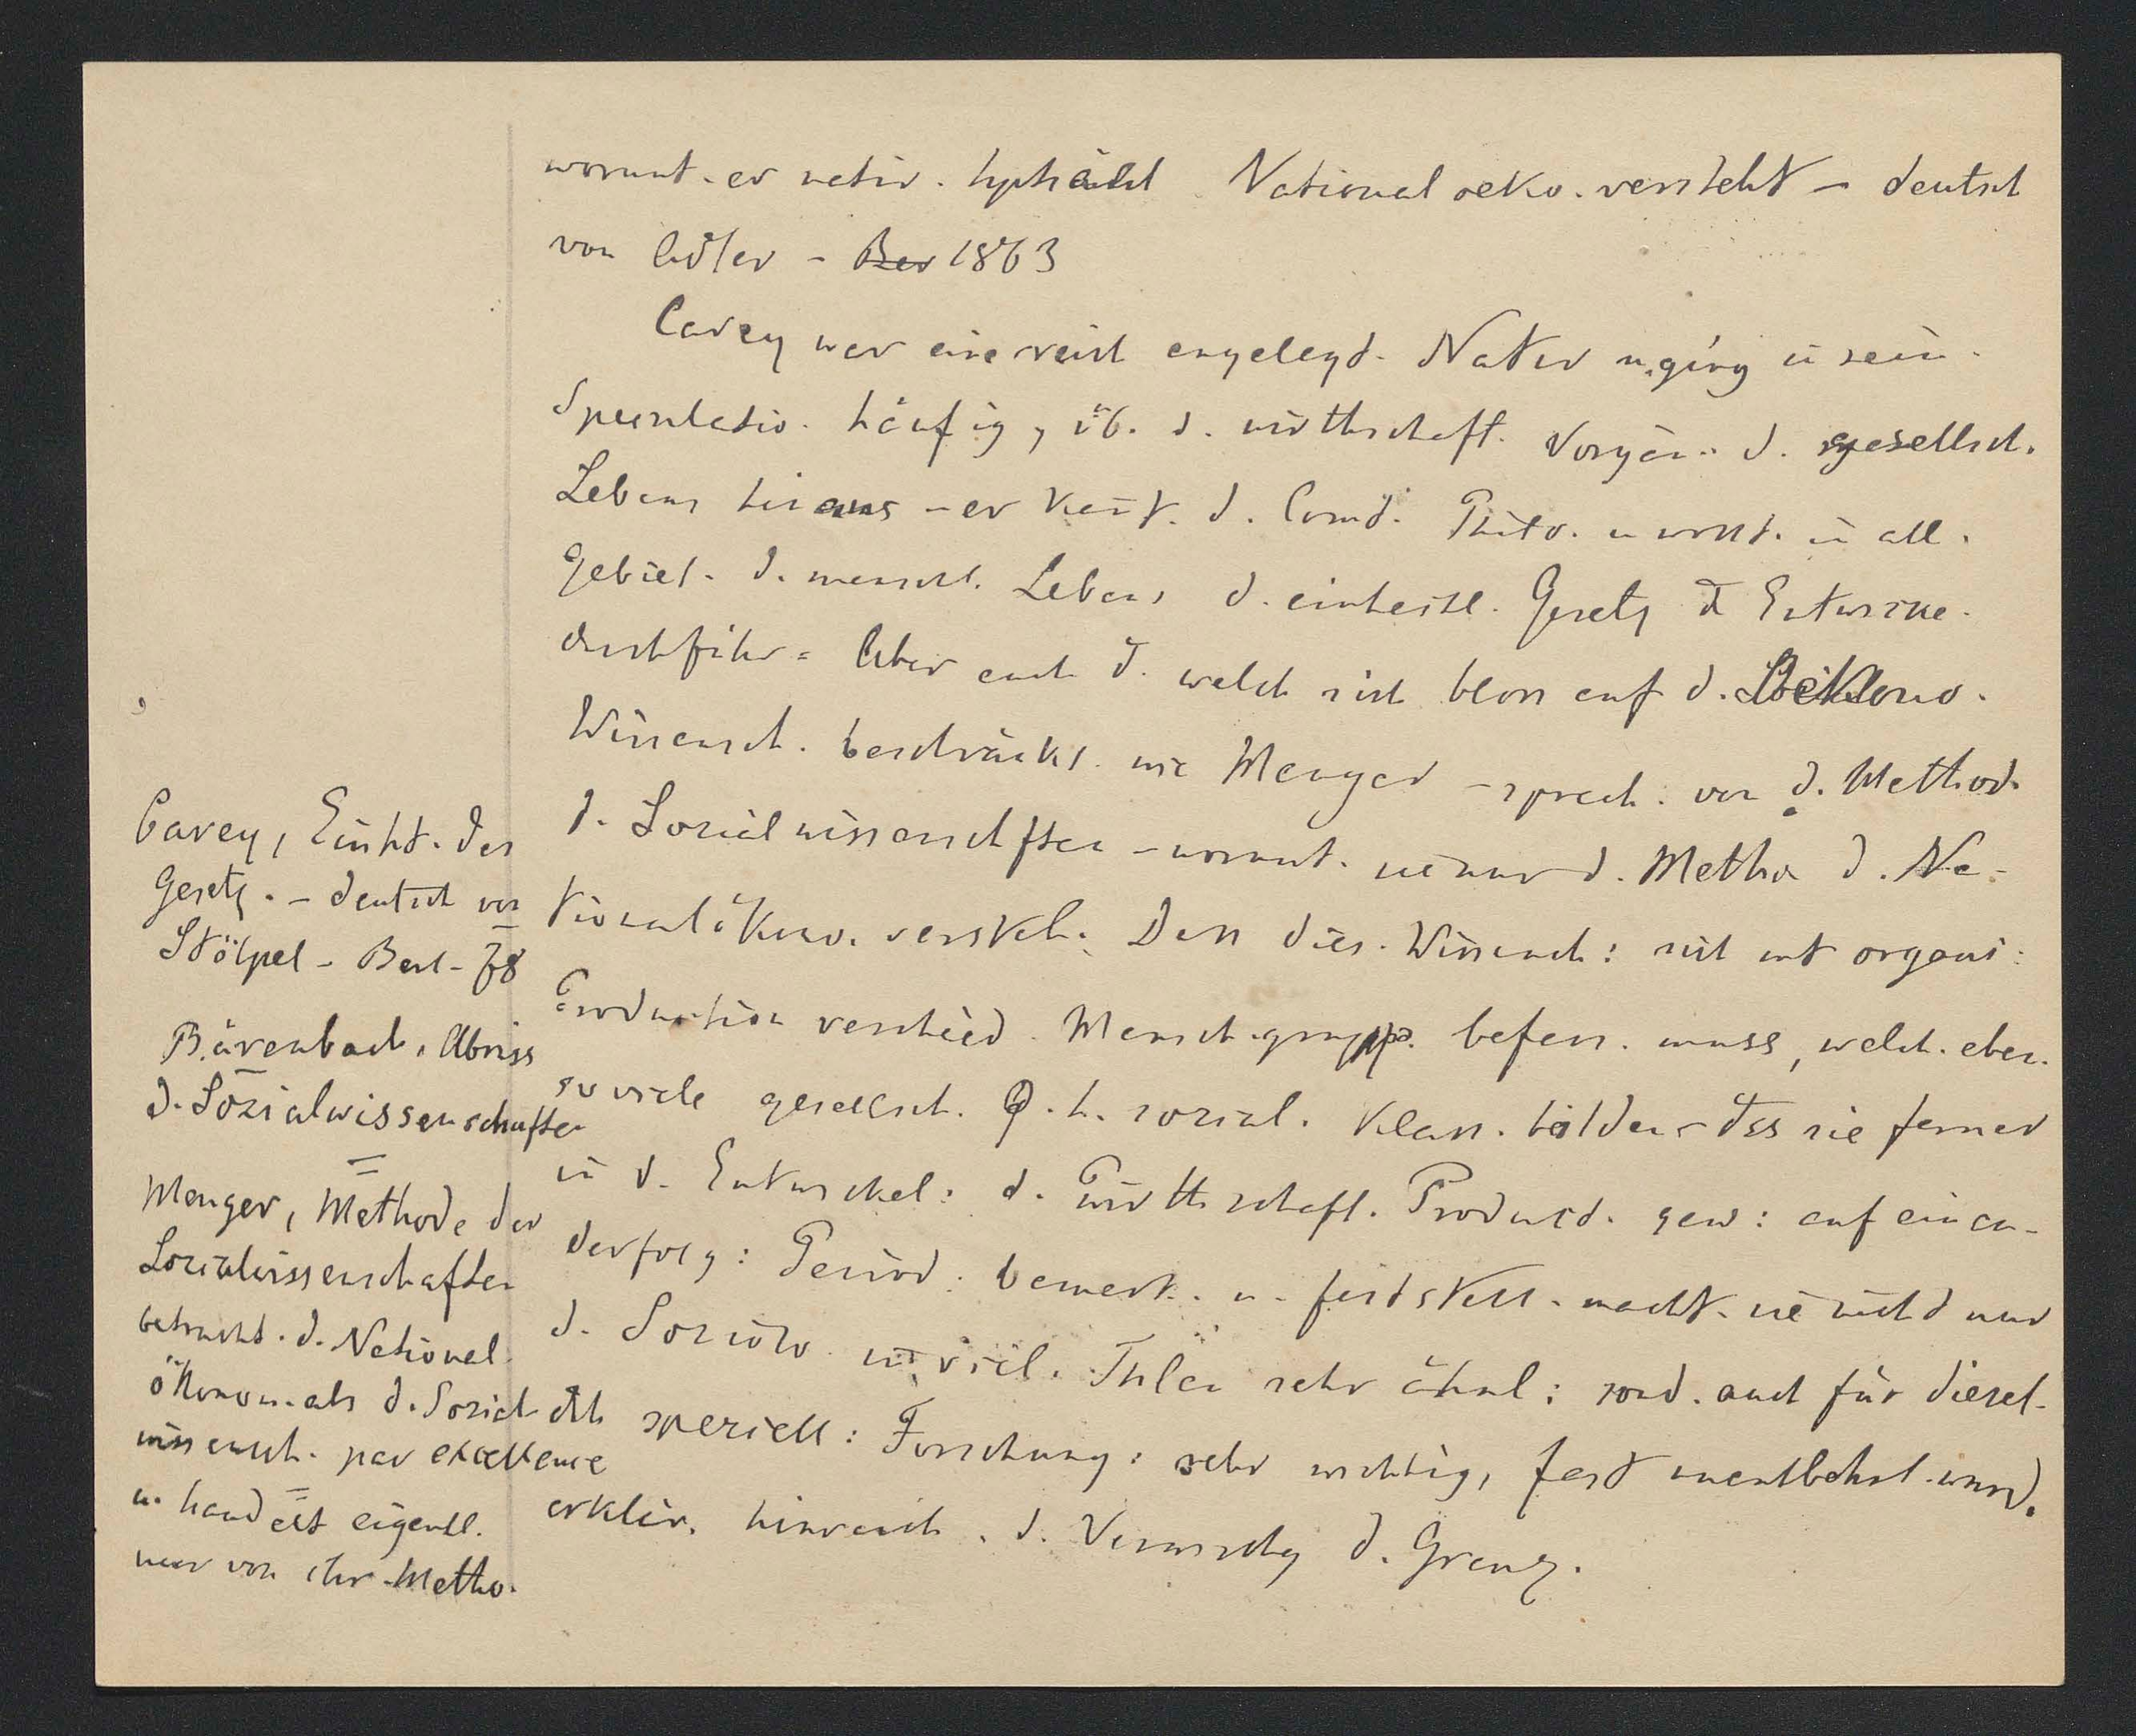 worunt. er Nationaloeko. versteht – deutsch
von Adler – Ber 1863
Carey war eine reich angelegt. Natur u. ging in sein.
Speculatio. häufig, üb. d. wirthschaftl. Vorgän. d. gesellsch.
Lebens hinaus – er d. Comt. Philo. u wollt. in all.
Gebiet. d. menschl. Lebens d. einheitl. Gesetz d Entwicke.
durchführ= Aber auch d. welch sich bloss auf d. Oekono.
Wissensch. beschränkt. wie Menger – sprech. von d. Method.
d. Sozialwissenschften – worunt. sie nur d. Metho d. Na-
tionalökono. versteh. Dass dies. Wissensch: sich mt organi:
Production verschied. Mensch.grupp. befass. muss, welch. eben.
so viele gesellsch. d. h. sozial. Klass. bilden – dss sie ferner
in d. Entwickel: d. wirthschaftl. Product. gew: auf einan-
derfolg: Period. bemerk. u. festsstell. macht. sie nicht nur
d. Soziolo. in viel. Thlen sehr ähnl: sond. auch für diesel.
als speziell: Forschung: sehr wichtig, fast unentbehrl. wurd.
erklär. hinreich. d. Vermischg d. Grenz.
Carey, Einht. der
Gesetz. – deutsch von
Stöpel – Berl – 78
Bärenbach, Abriss
d. Sozialwissenschaften
Menger, Methode der
Sozialwissenschaften
betracht. d. National
ökonom. als d. Sozial
wissensch. par excellence
u. handelt eigentl.
nur von ihr. Metho.